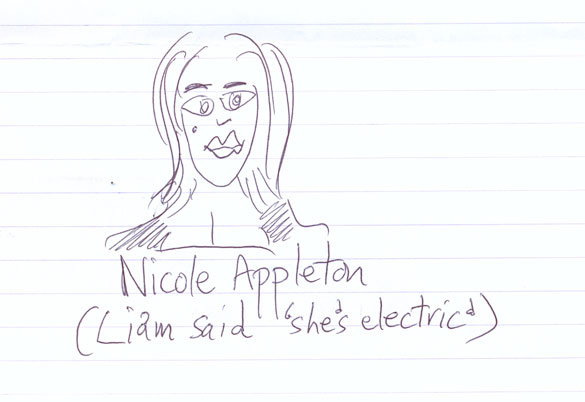 Nicole Appleton
(Liam said 'she's electric')